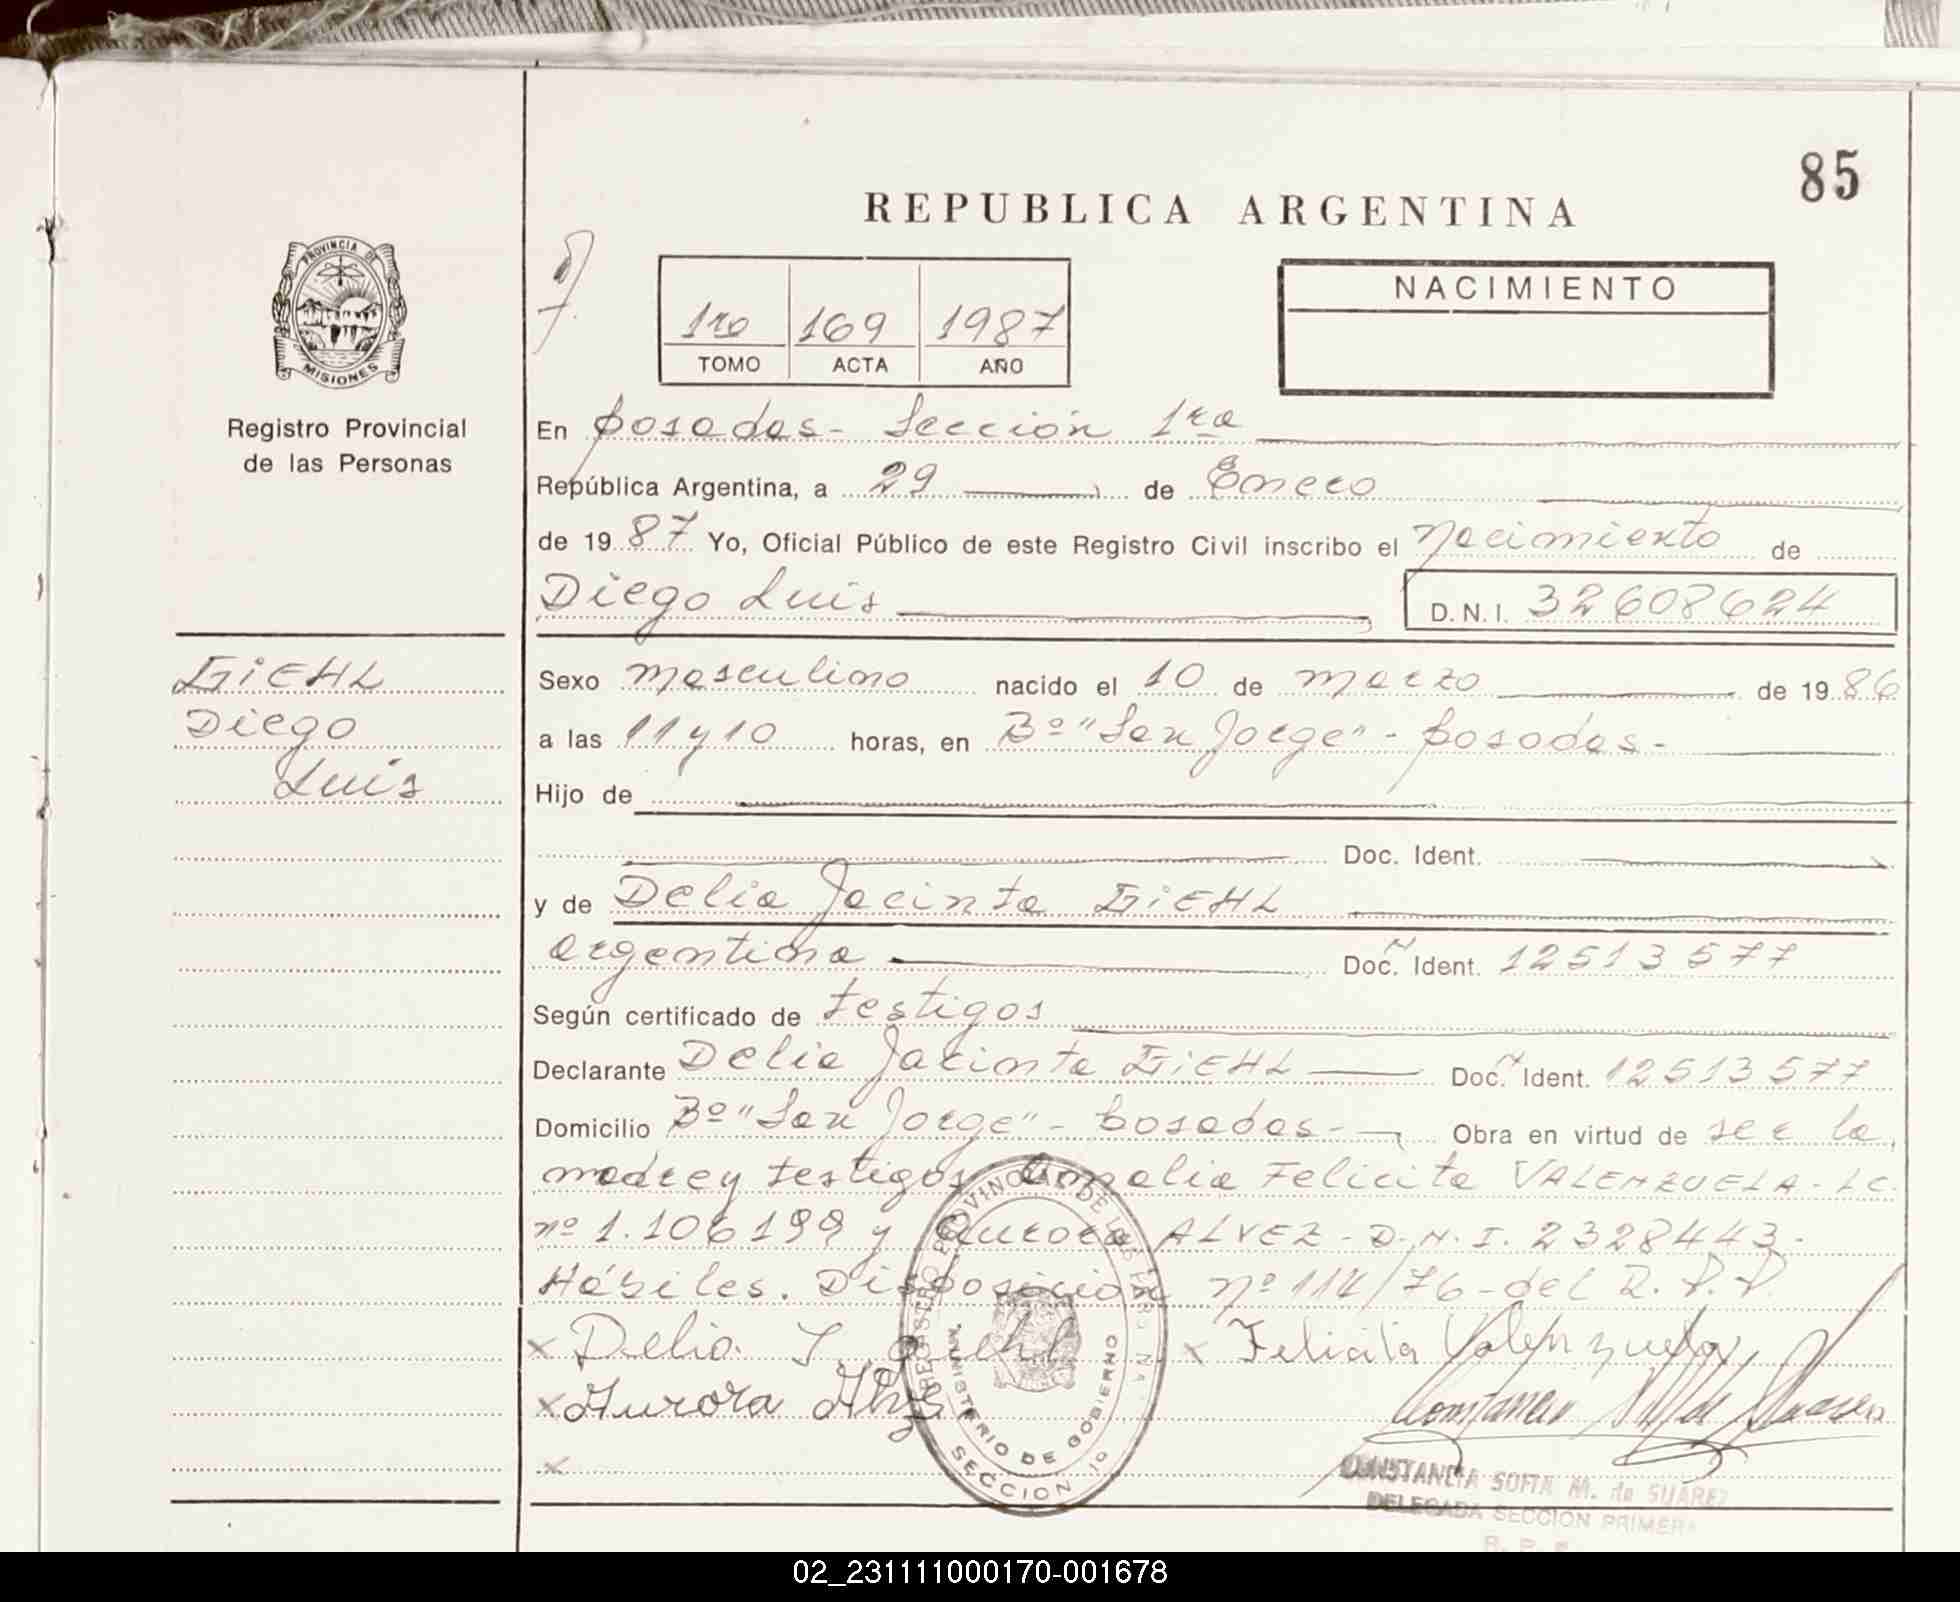 85
REPUBLICA ARGENTINA
NACIMIENTO
1ro 169 1987
TOMO ACTA AÑO
PROVINCIA DE
MISIONES
Registro Provincial
de las Personas
En Posadas- Sección 1ra
República Argentina, a 29 de Enero
de 1987 Yo, Oficial Público de este Registro Civil inscribo el Nacimiento de
Diego Luis D.N.I. 32608624
GiEHL
Diego
Luis
Sexo masculino nacido el 10 de marzo de 1986
a las 11 y 10 horas, en Bº "San Jorge"- Posadas-
Hijo de
Doc. Ident.
y de Delia Jacinta GiEHL
argentina Doc. Ident. 12513577
Según certificado de testigos
Declarante Delia Jacinta GiEHL Doc. Ident. 12513577
Domicilio Bº "San Jorge"- Posadas- Obra en virtud de ser la
madre y testigos Amalia Felicita VALENZUELA-LC.
nº 1.106199 y Aurora ALVEZ-D.N.I. 2328443-
Hábiles. Disposición nº 114/76-del R.P.P.
x Delia J. Giehl x Felicita Valenzuela
x Aurora Alvez
x
REGISTRO PROVINCIAL DE LAS PERSONAS
MINISTERIO DE GOBIERNO
SECCION 1º
CONSTANCIA SOFIA M. de SUAREZ
DELEGADA SECCION PRIMERA
02_231111000170-001678